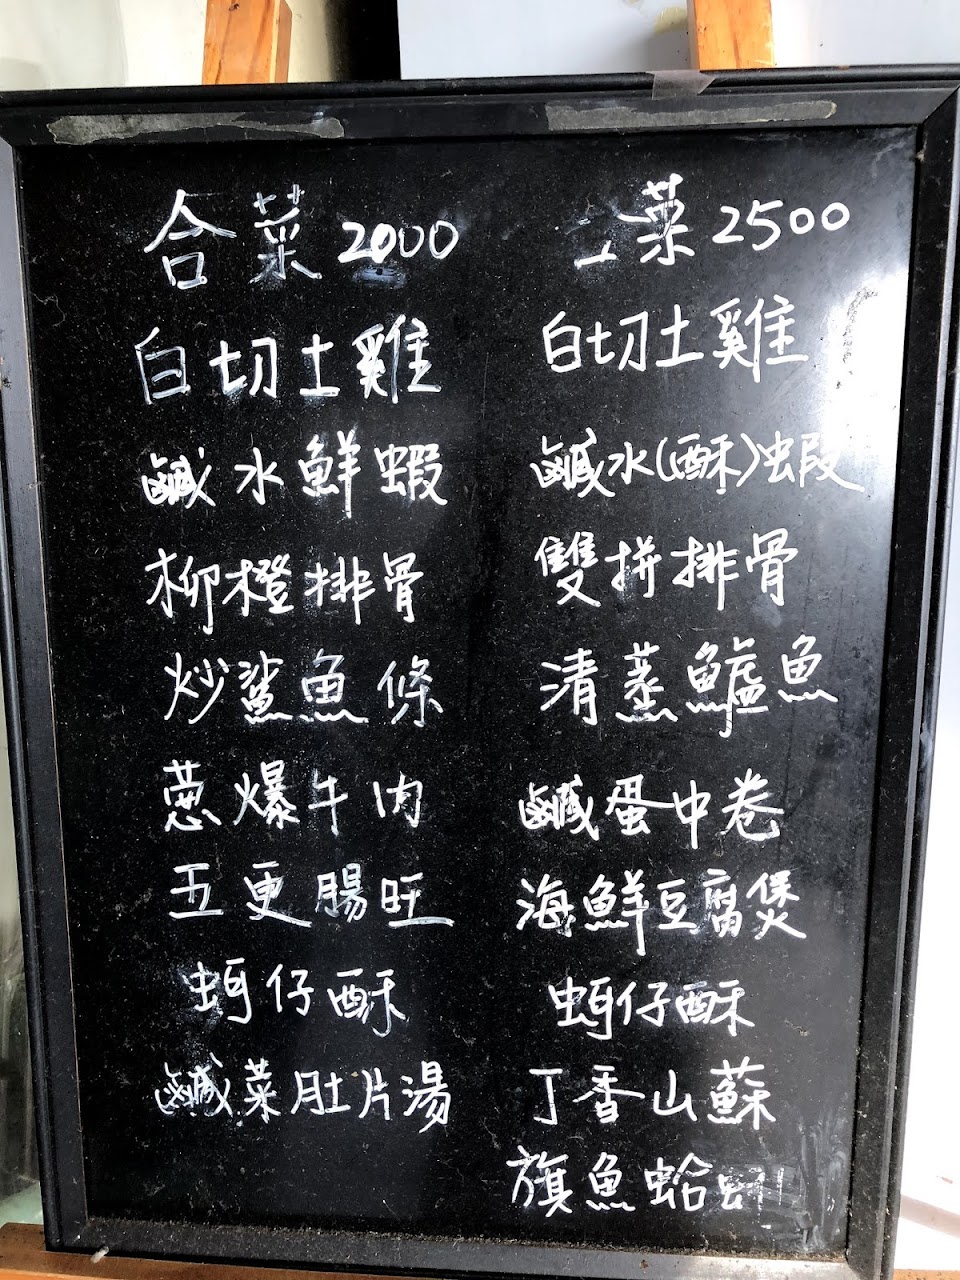 合菜2000
白切土雞
鹹水鮮蝦
柳橙排骨
炒鯊魚條
蔥爆牛肉
五更腸旺
蚵仔酥
鹹菜肚片湯
菜2500
白切土雞
鹹水(酥)蝦
雙拼排骨
清蒸鱸魚
鹹蛋中卷
海鮮豆腐煲
蚵仔酥
丁香山蘇
旗魚蛤